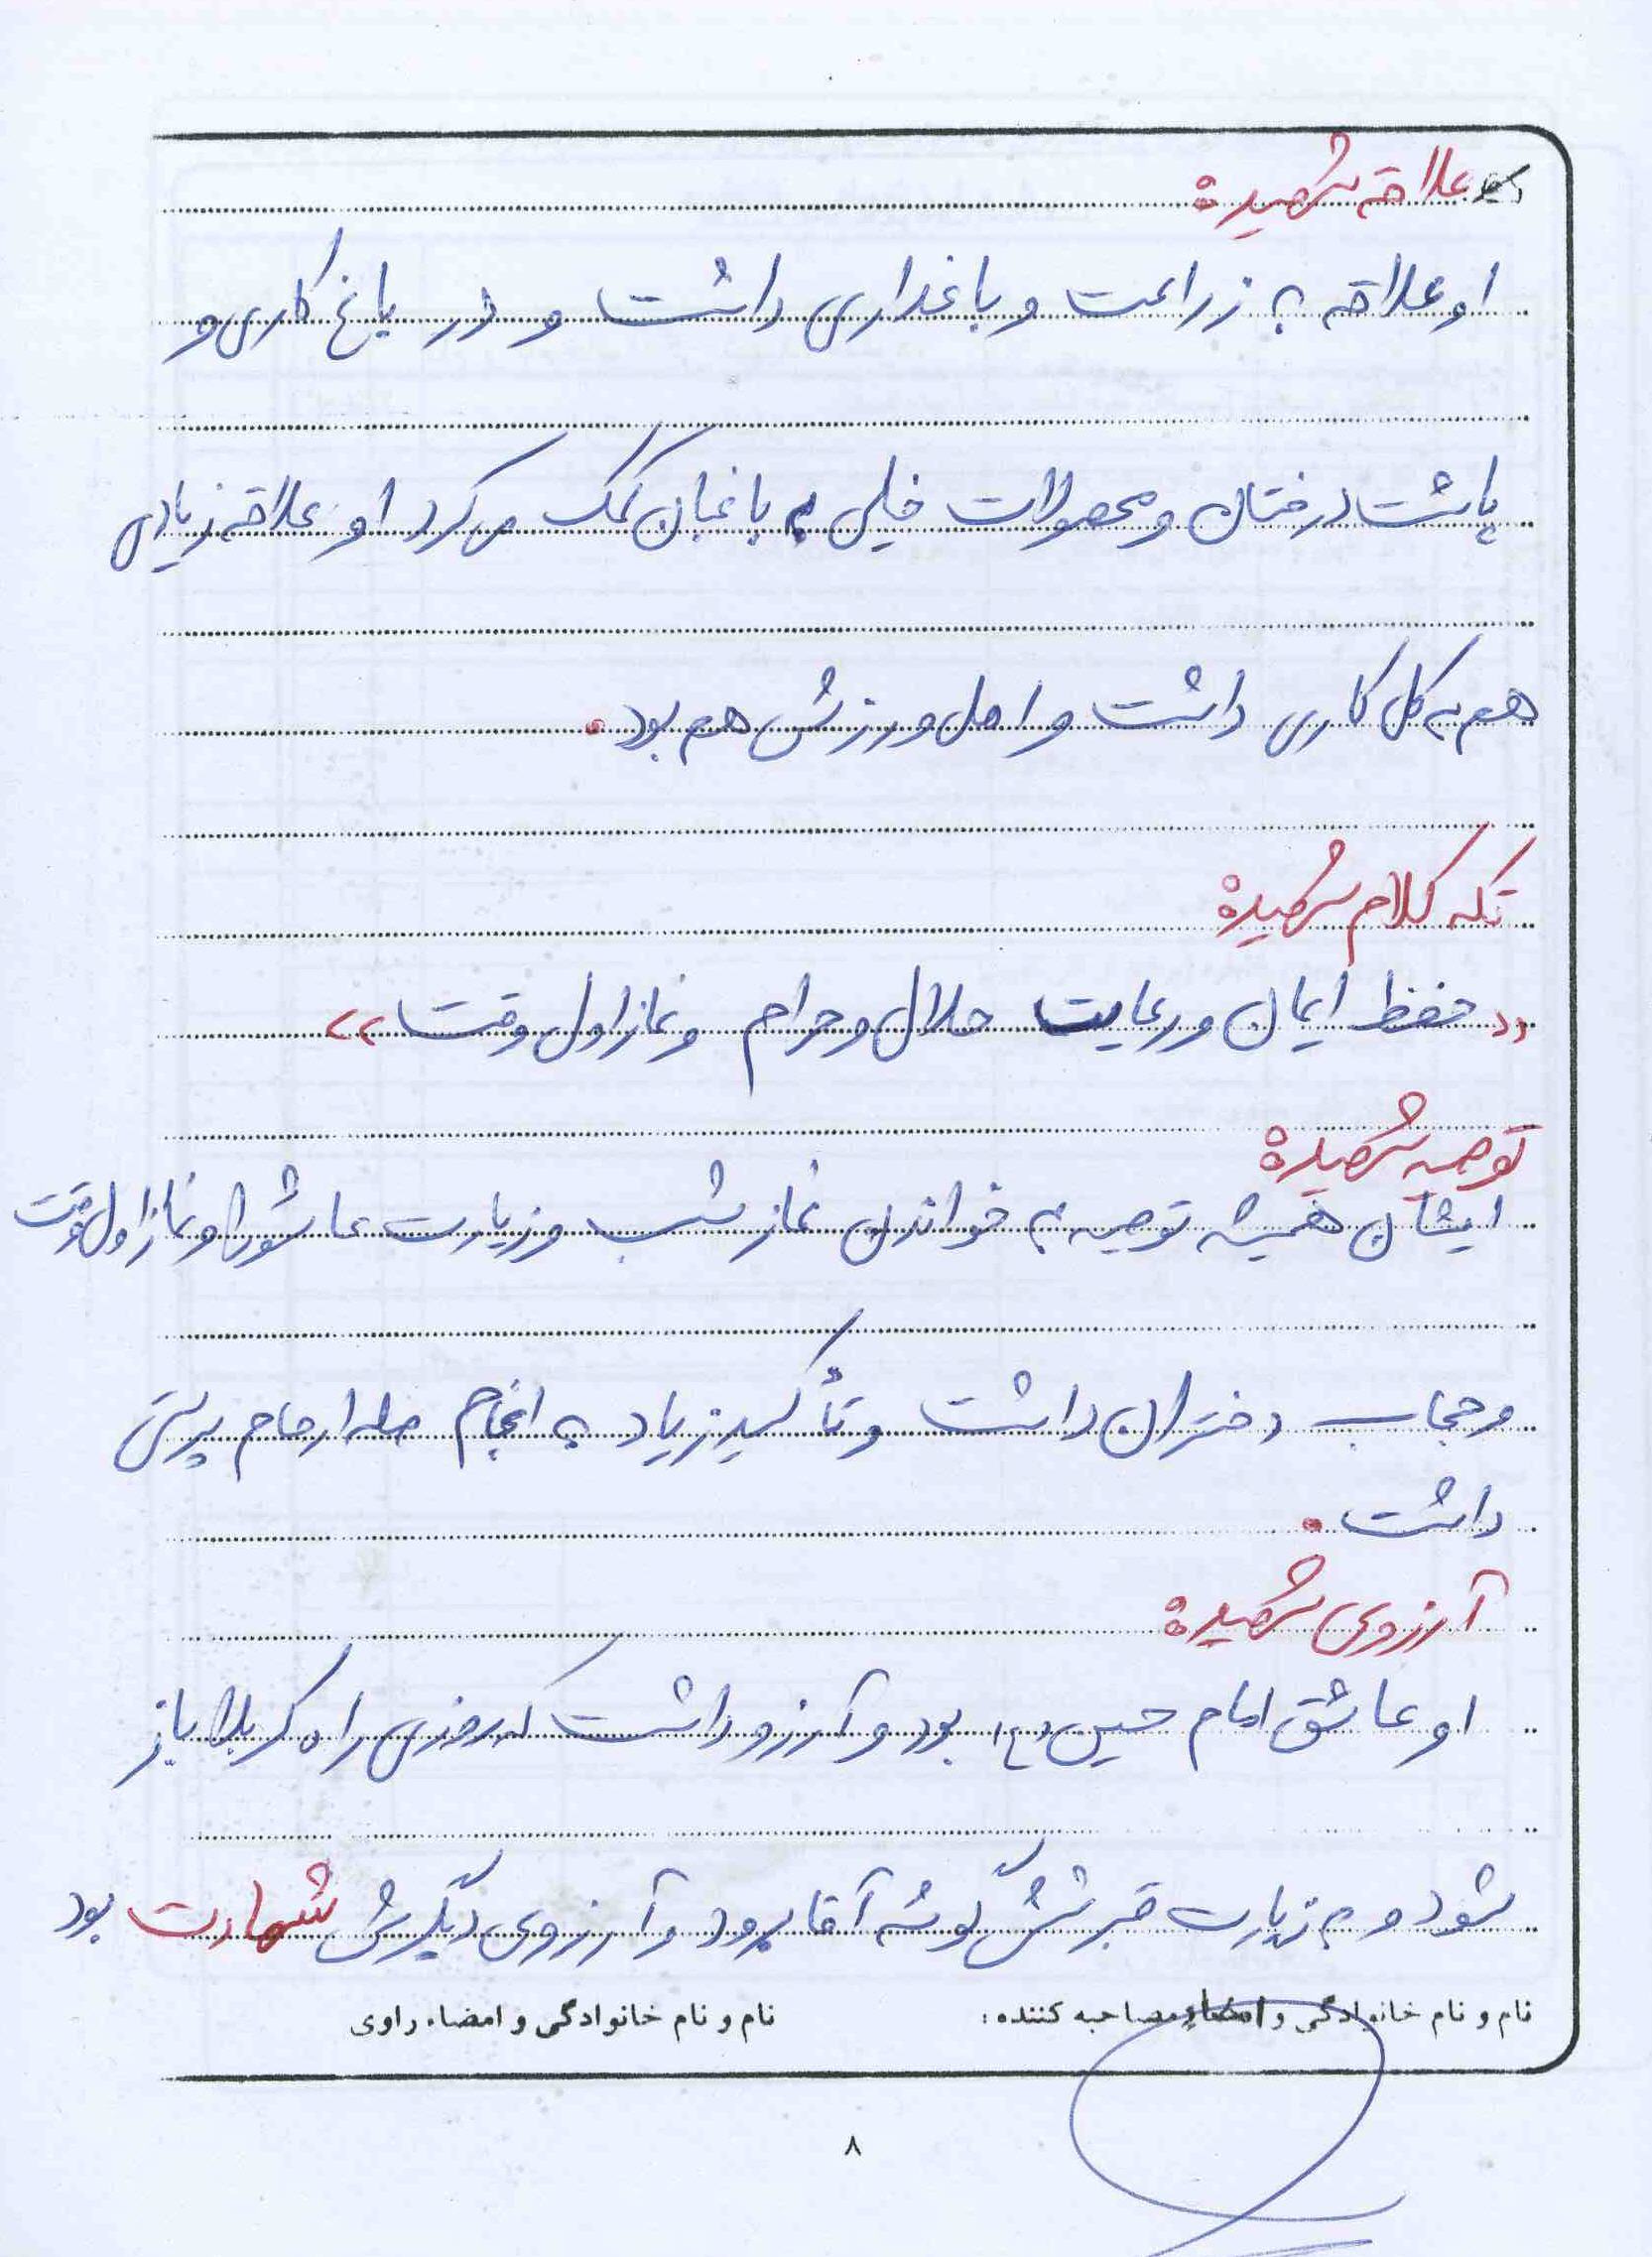 علاقه شهید:
او علاقه به زراعت و باغداری داشت و در باغ کاری و
پاشت درختان و محصولات خیلی به باغبان کمک می کرد او علاقه زیادی
هم به گل کاری داشت و اهل ورزش هم بود.
تکه کلام شهید:
«حفظ ایمان و رعایت حلال و حرام و نماز اول وقت»
توصیه شهید:
ایشان همیشه توصیه به خواندن نماز شب و زیارت عاشورا و نماز اول وقت
و حجاب دختران داشت و تأکید زیاد به انجام صله ارحام
داشت.
آرزوی شهید:
او عاشق امام حسین (ع) بود و آرزو داشت که روزی راه کربلا باز
شود و به زیارت قبر شش گوشه آقا برود و آرزوی دیگرش شهادت بود
نام و نام خانوادگی و امضاء مصاحبه کننده: نام و نام خانوادگی و امضاء راوی
۸